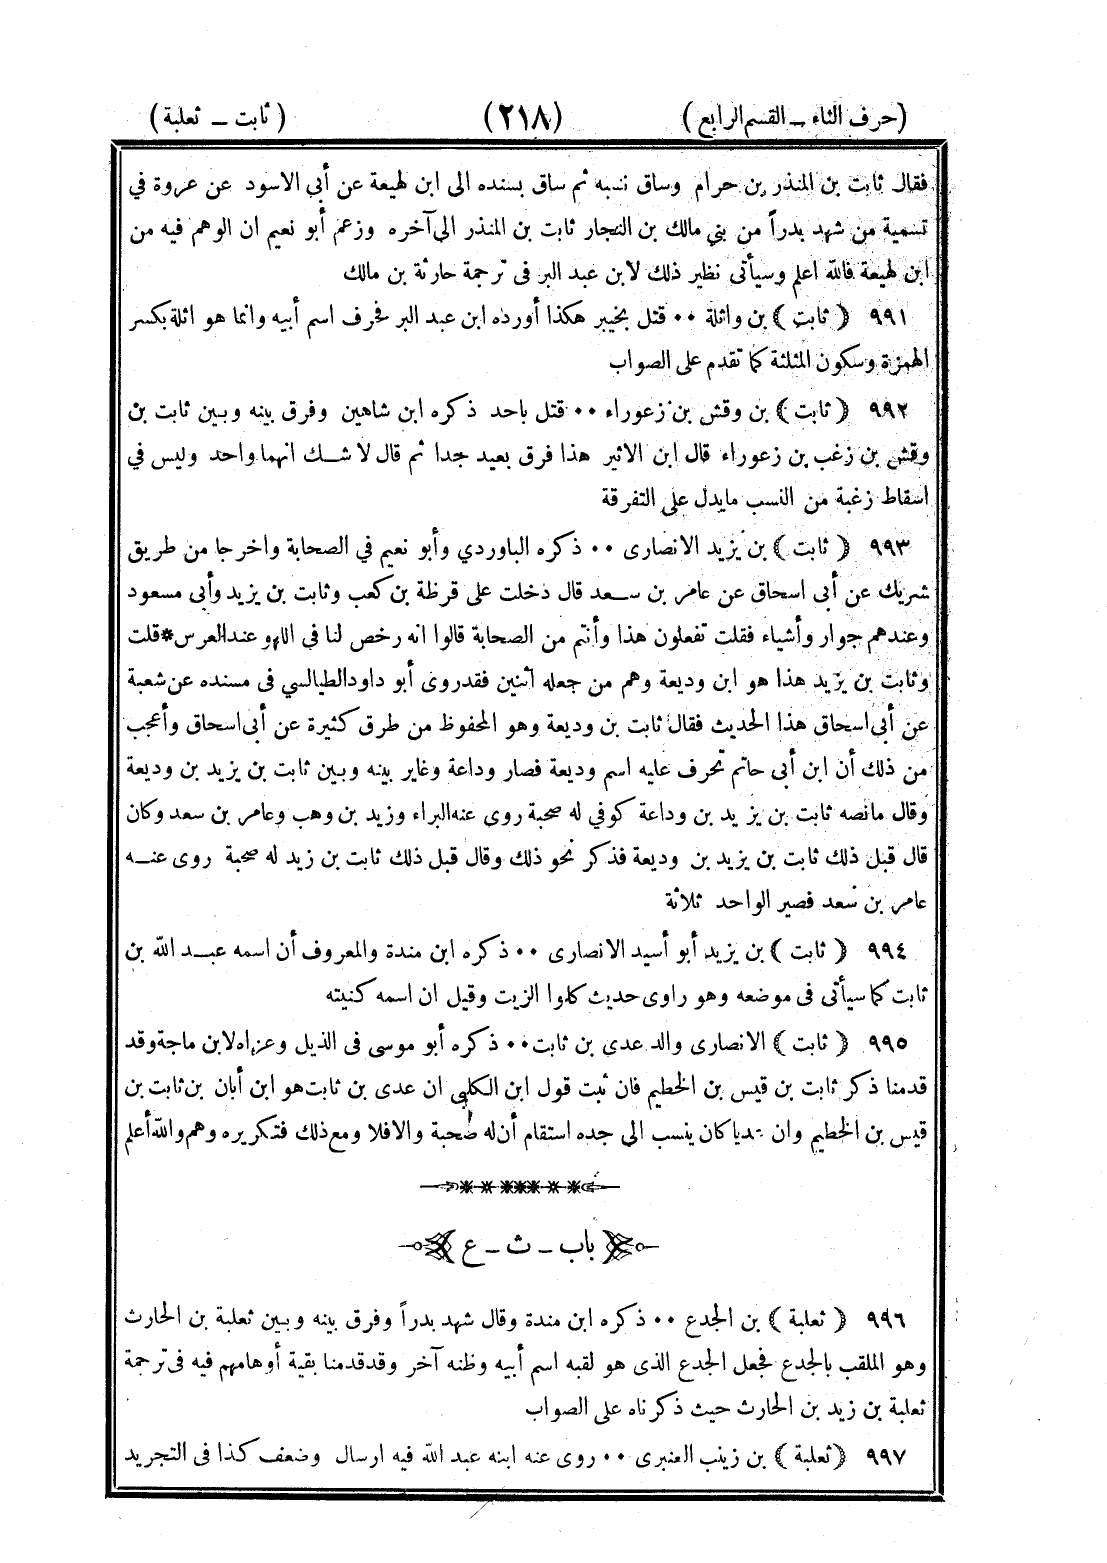 (حرف الثاء ـ القسم الرابع) (٢١٨) (ثابت ـ ثعلبة)
فقال ثابت بن المنذر بن حرام وساق نسبه ثم ساق بسنده الى ابن لهيعة عن أبي الاسود عن عروة في
تسمية من شهد بدراً من بني مالك بن النجار ثابت بن المنذر الى آخره وزعم أبو نعيم ان الوهم فيه من
ابن لهيعة فالله اعلم وسيأتى نظير ذلك لابن عبد البر فى ترجمة حارثة بن مالك
٩٩١ (ثابت) بن واثلة ٠٠ قتل بخيبر هكذا أورده ابن عبد البر فحرف اسم أبيه وانما هو اثلة بكسر
الهمزة وسكون المثلثة كما تقدم على الصواب
٩٩٢ (ثابت) بن وقش بن زعوراء ٠٠ قتل باحد ذكره ابن شاهين وفرق بينه وبين ثابت بن
وقش بن زغب بن زعوراء قال ابن الاثير هذا فرق بعيد جدا ثم قال لا شك انهما واحد وليس في
اسقاط زغبة من النسب مايدل على التفرقة
٩٩٣ (ثابت) بن يزيد الانصارى ٠٠ ذكره الباوردي وأبو نعيم في الصحابة واخرجا من طريق
شريك عن أبى اسحاق عن عامر بن سعد قال دخلت على قرظة بن كعب وثابت بن يزيد وأبى مسعود
وعندهم جوار وأشياء فقلت تفعلون هذا وأنتم من الصحابة قالوا انه رخص لنا فى اللهو عند العرس*قلت
وثابت بن يزيد هذا هو ابن وديعة وهم من جعله اثنين فقدروى أبو داود الطيالسي فى مسنده عن شعبة
عن أبى اسحاق هذا الحديث فقال ثابت بن وديعة وهو المحفوظ من طرق كثيرة عن أبى اسحاق وأعجب
من ذلك أن ابن أبى حاتم تحرف عليه اسم وديعة فصار وداعة وغاير بينه وبين ثابت بن يزيد بن وديعة
وقال مانصه ثابت بن يزيد بن وداعة كوفي له صحبة روى عنه البراء وزيد بن وهب وعامر بن سعد وكان
قال قبل ذلك ثابت بن يزيد بن وديعة فذكر نحو ذلك وقال قبل ذلك ثابت بن زيد له صحبة روى عنه
عامر بن سعد فصير الواحد ثلاثة
٩٩٤ (ثابت) بن يزيد أبو أسيد الانصارى ٠٠ ذكره ابن مندة والمعروف أن اسمه عبد الله بن
ثابت كما سيأتى فى موضعه وهو راوى حديث كلوا الزيت وقيل ان اسمه كنيته
٩٩٥ (ثابت) الانصارى والد عدى بن ثابت ٠٠ ذكره أبو موسى فى الذيل وعزاه لابن ماجة وقد
قدمنا ذكر ثابت بن قيس بن الخطيم فان ثبت قول ابن الكلبي ان عدى بن ثابت هو ابن أبان بن ثابت بن
قيس بن الخطيم وان عديا كان ينسب الى جده استقام أن له صحبة والافلا ومع ذلك فتكريره وهم والله أعلم
باب ـ ث ـ ع
٩٩٦ (ثعلبة) بن الجدع ٠٠ ذكره ابن مندة وقال شهد بدراً وفرق بينه وبين ثعلبة بن الحارث
وهو الملقب بالجدع فجعل الجدع الذى هو لقبه اسم أبيه وظنه آخر وقد قدمنا بقية أوهامهم فيه فى ترجمة
ثعلبة بن زيد بن الحارث حيث ذكرناه على الصواب
٩٩٧ (ثعلبة) بن زينب العنبرى ٠٠ روى عنه ابنه عبد الله فيه ارسال وضعف كذا فى التجريد